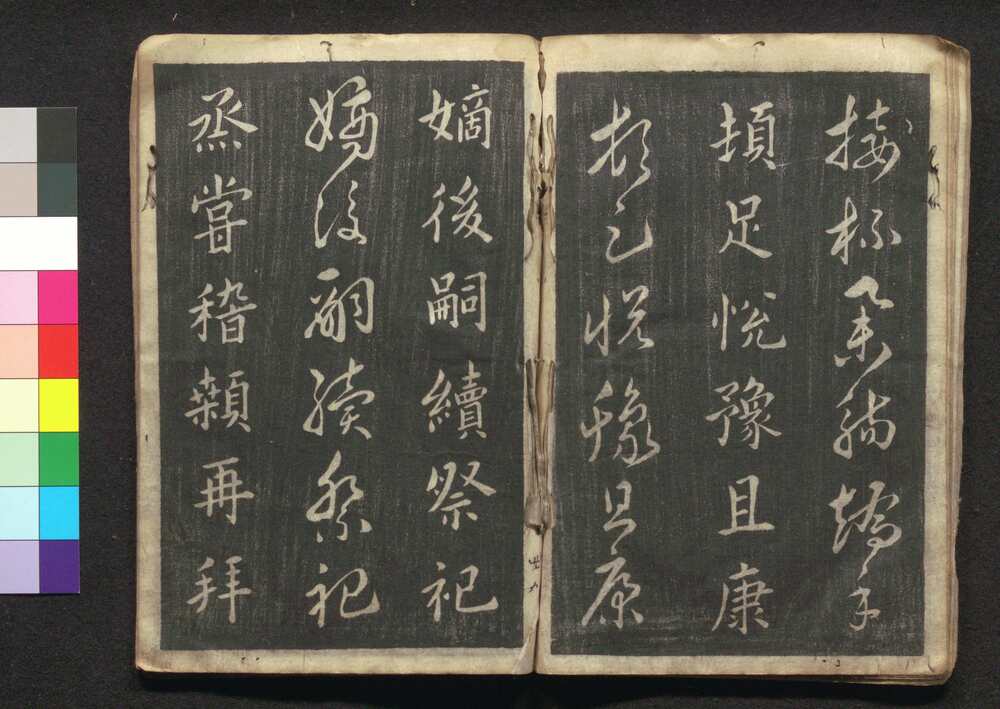 接杯舉觴矯手
頓足悅豫且康
頓足悅豫且康
嫡後嗣續祭祀
嫡後嗣續祭祀
烝嘗稽顙再拜